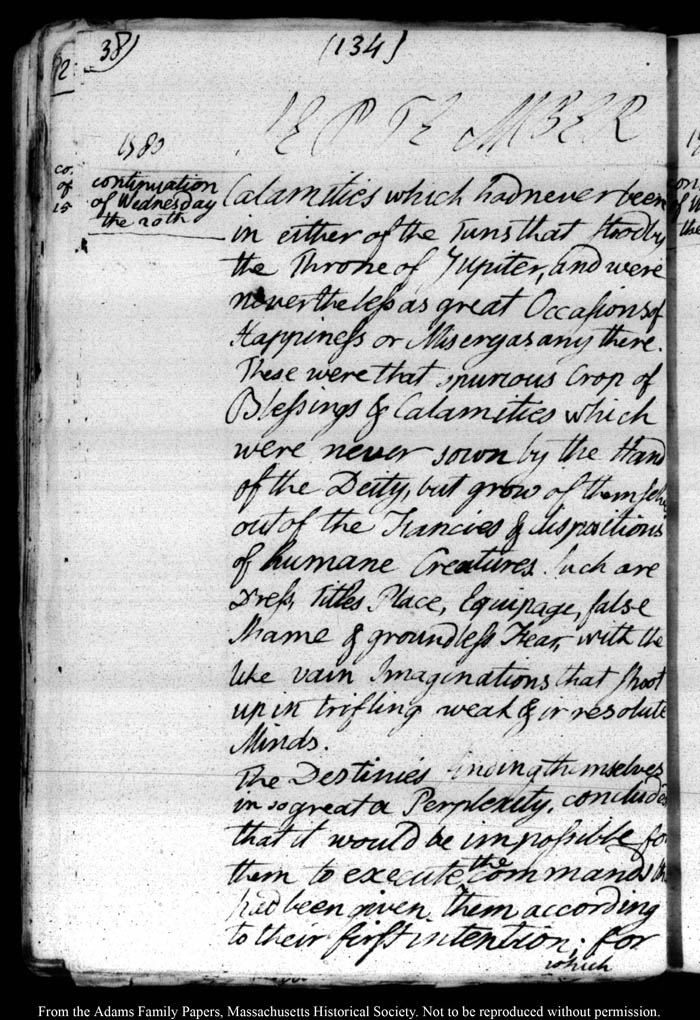 38)
(134)
SEPTEMBER
1780
continuation
of Wednesday
the 20th
co.
of
15
Calamities which had never been
in either of the Tuns that stood by
the Throne of Jupiter, and were
nevertheless as great Occasions of
Happiness or Misery as any there.
These were that spurious Crop of
Blessings & Calamities which
were never sown by the Hand
of the Deity, but grow of themselves
out of the Fancies & dispositions
of humane Creatures. Such are
Dress, Titles Place, Equipage, false
Shame & groundless Fear, with the
like vain Imaginations that shoot
up in trifling weak & irresolute
Minds.
The Destinies finding themselves
in so great a Perplexity, concluded
that it would be impossible for
them to execute the commands
had been given them according
to their first intention; for
which
From the Adams Family Papers, Massachusetts Historical Society. Not to be reproduced without permission.